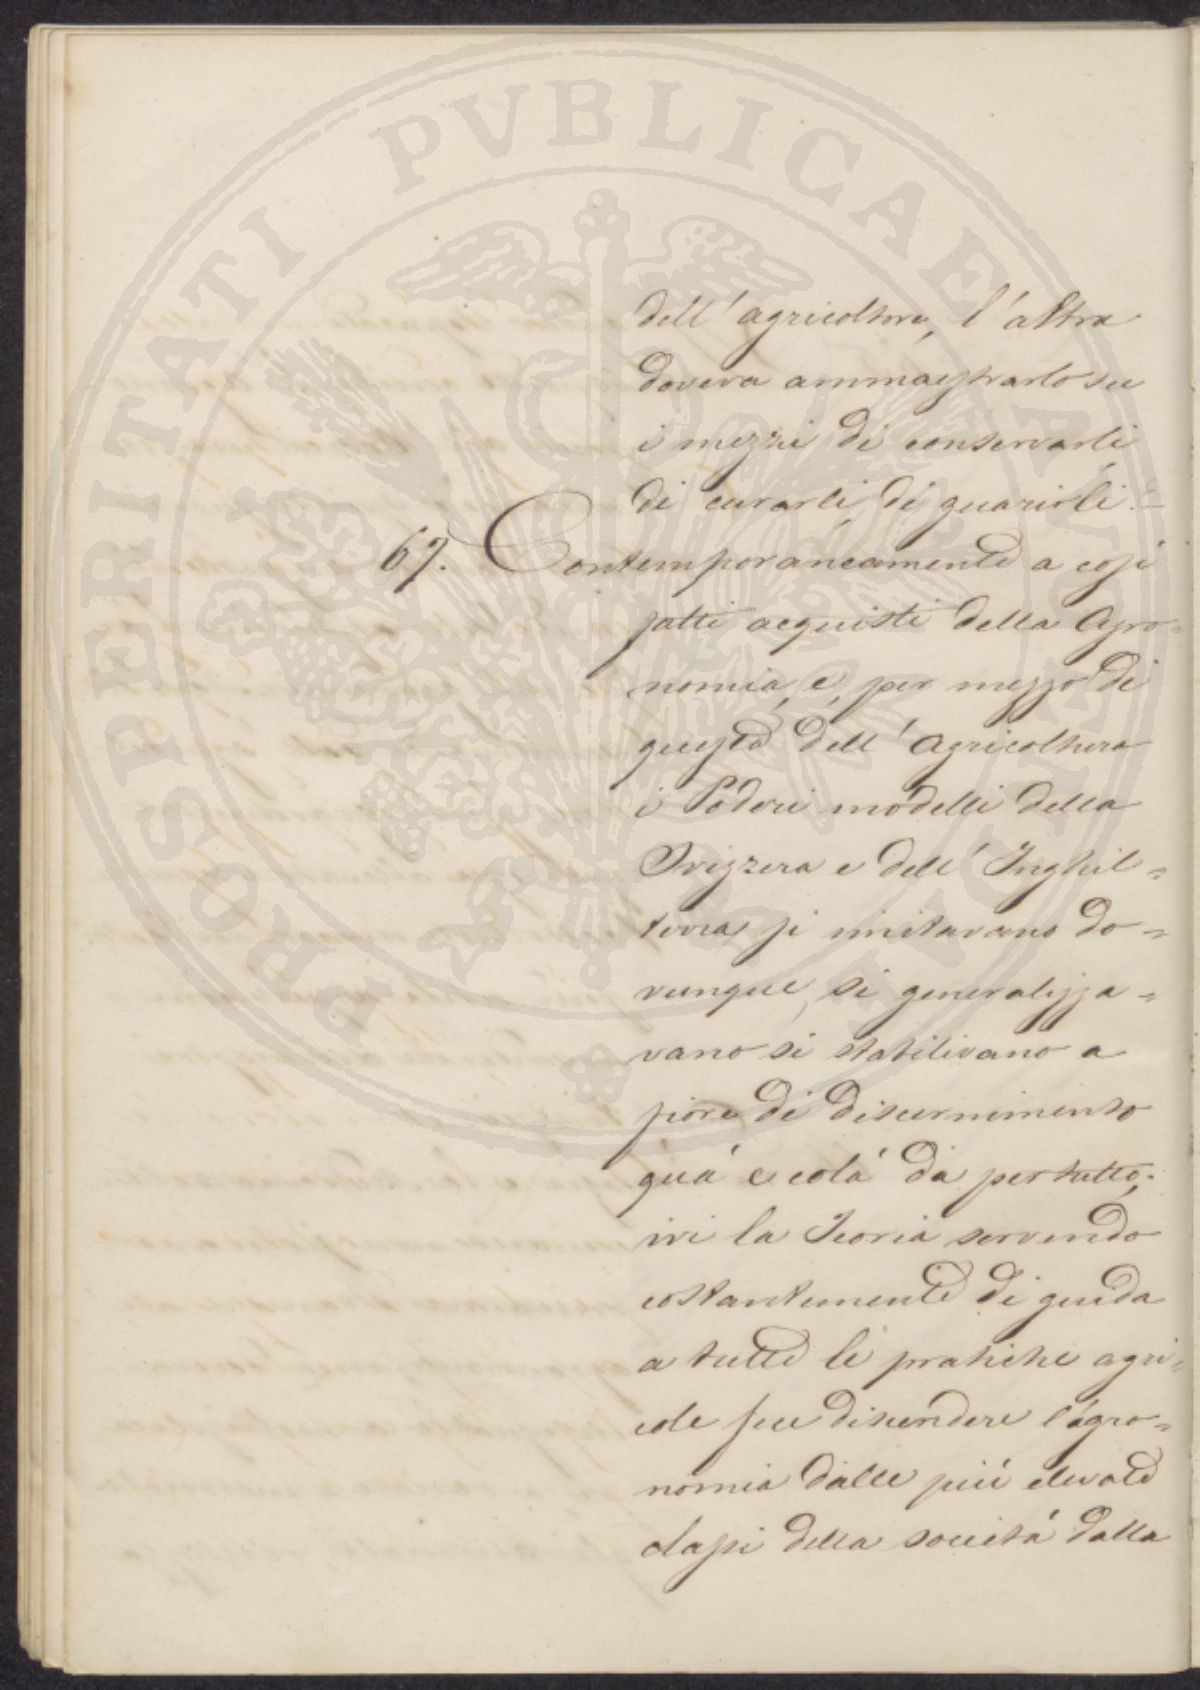 PROSPERITATI PVBLICAE AVGENDAE
dell'agricoltore, l'altra
doveva ammaestrarlo su
i mezzi di conservarli,
di curarli, di guarirli. =
67. Contemporaneamente a così
fatti acquisti della Agro=
nomia, e, per mezzo di
questa, dell'Agricoltura
i Poderi modelli della
Svizzera e dell'Inghil=
terra si imitavano do=
vunque, si generalizza=
vano si stabilivano a
fiore di discernimento
quá e colá da per tutto;
ivi la Teoria servendo
costantemente di guida
a tutte le pratiche agri=
cole fece discendere l'agro=
nomia dalle piú elevate
classi della societá dalla